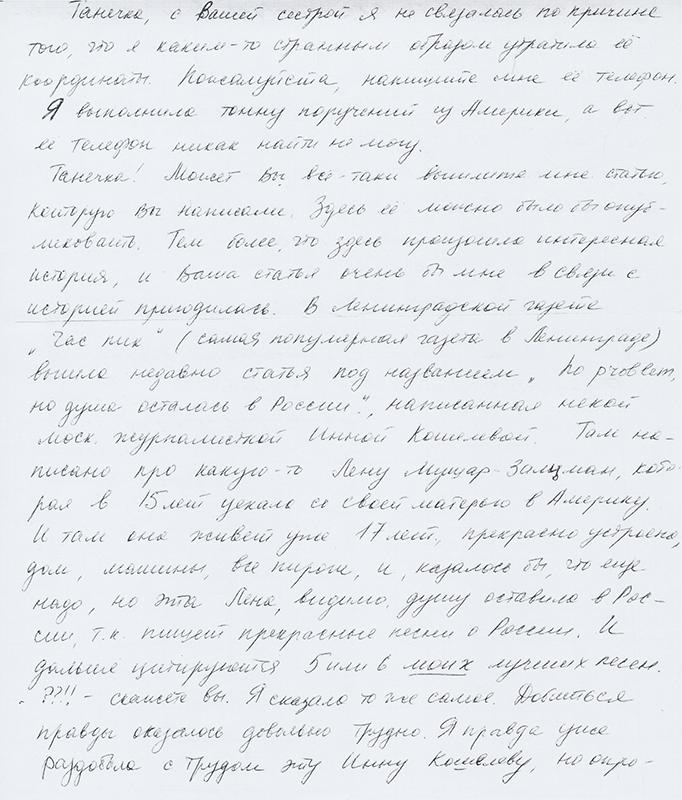 Танечка, с Вашей сестрой я не связалась по причине
того, что я каким-то странным образом утратила её
координаты. Пожалуйста, напишите мне её телефон.
Я выполнила тонну поручений из Америки, а вот
её телефон никак найти не могу.
Танечка! Может Вы всё-таки вышлите мне статью,
которую Вы написали. Здесь её можно было бы опуб-
ликовать. Тем более, что здесь произошла интересная
история, и Ваша статья очень бы мне в связи с
историей пригодилась. В Ленинградской газете
„Час пик“ (самая популярная газета в Ленинграде)
вышла недавно статья под названием „
но душа осталась в России“, написанная некой
моск. журналисткой Инной Кошелевой. Там на-
писано про какую-то Лену Мущар-Зальцман, кото-
рая в 15 лет уехала со своей матерью в Америку.
И там она живёт уже 17 лет, прекрасно устроена,
дом, машины, все пироги, и, казалось бы, что ещё
надо, но эта Лена, видимо, душу оставила в Рос-
сии, т.к. пишет прекрасные песни о России. И
дальше цитируются 5 или 6 моих лучших песен.
??!! - скажете вы. Я сказала то же самое. Добиться
правды оказалось довольно трудно. Я правда уже
раздобыла с трудом эту Инну Кошелеву, но опро-